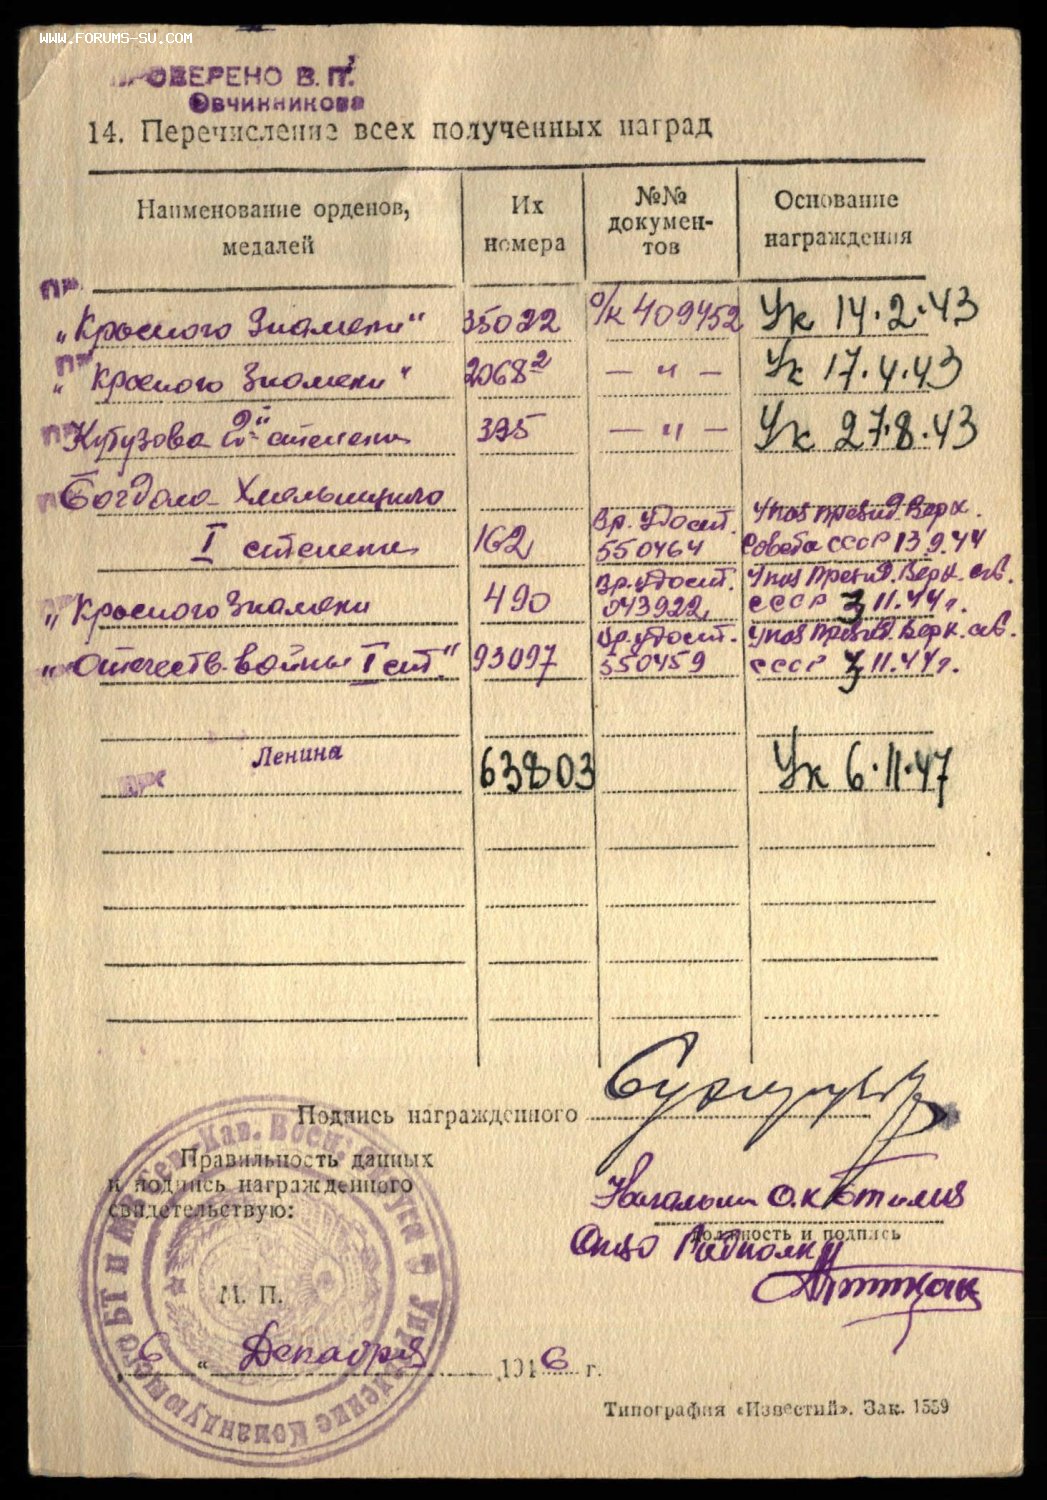 WWW.FORUMS-SU.COM
ПРОВЕРЕНО В.П.
Овчинникова
14. Перечисление всех полученных наград
Наименование орденов, медалей Их номера №№ документов Основание награждения
„Красного Знамени“ 35022 о/к 409452 Ук 14.2.43
„Красного Знамени“ 2068² — " — Ук 17.4.43
Кутузова 2й степени 395 — " — Ук 27.8.43
Богдана Хмельницкого
I степени 162 Вр. удост. 550464 Указ Презид. Верх. Совета СССР 13.9.44
„Красного Знамени 490 Вр. удост. 043922 Указ Презид. Верх. св. СССР 3 11.44 г.
„Отечеств. войны I ст." 93097 Вр. удост. 550459 Указ Презид. Верх. св. СССР 3 11.44 г.
Ленина 63803 Ук 6.11.47
Подпись награжденного
Правильность данных
и подпись награжденного
свидетельствую:
Начальник О.К.
должность и подпись
М. П.
„6“ Декабря 1946 г.
Управление Командующего БТ и МВ Сев.-Кав. Воен.
Типография «Известий». Зак. 1559